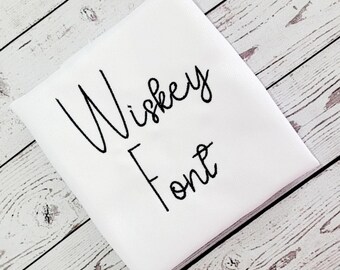 Wiskey
Font